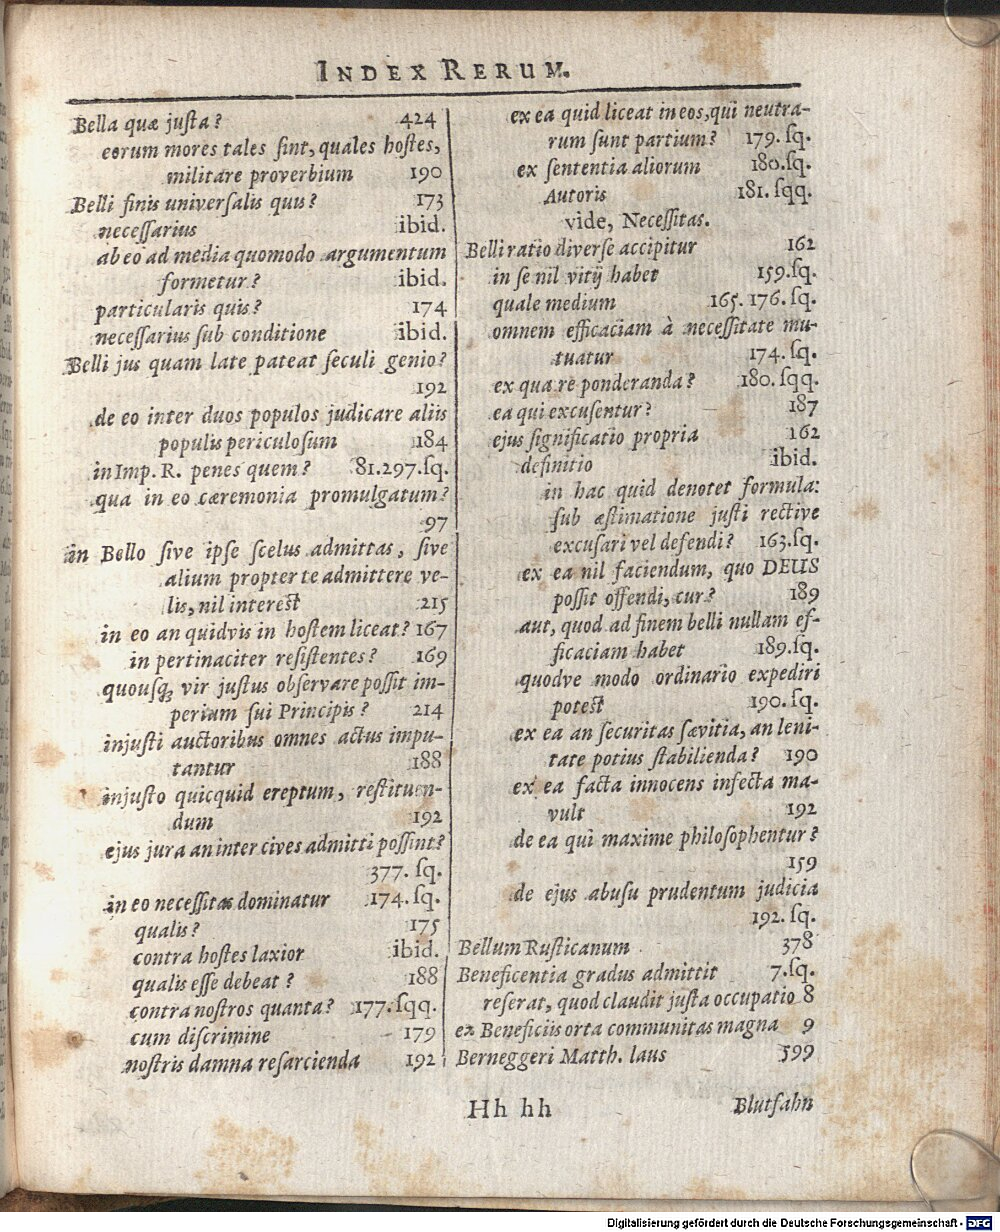 INDEX RERUM.
Bella quæ justa? 424
eorum mores tales sint, quales hostes,
militare proverbium 190
Belli finis universalis quis? 173
necessarius ibid.
ab eo ad media quomodo argumentum
formetur? ibid.
particularis quis? 174
necessarius sub conditione ibid.
Belli jus quam late pateat seculi genio?
192
de eo inter duos populos judicare aliis
populis periculosum 184
in Imp. R. penes quem? 81.297.sq.
qua in eo cæremonia promulgatum?
97
in Bello sive ipse scelus admittas, sive
alium propter te admittere ve-
lis, nil interest 215
in eo an quidvis in hostem liceat? 167
in pertinaciter resistentes? 169
quousq; vir justus observare possit im-
perium sui Principis? 214
injusti auctoribus omnes actus impu-
tantur 188
injusto quicquid ereptum, restituen-
dum 192
ejus jura an inter cives admitti possint?
377. sq.
in eo necessitas dominatur 174. sq.
qualis? 175
contra hostes laxior ibid.
qualis esse debeat? 188
contra nostros quanta? 177. sqq.
cum discrimine 179
nostris damna resarcienda 192
ex ea quid liceat in eos, qui neutra-
rum sunt partium? 179. sq.
ex sententia aliorum 180. sq.
Autoris 181. sqq.
vide, Necessitas.
Belli ratio diverse accipitur 162
in se nil vitij habet 159. sq.
quale medium 165. 176. sq.
omnem efficaciam à necessitate mu-
tuatur 174. sq.
ex qua re ponderanda? 180. sqq.
ea qui excusentur? 187
ejus significatio propria 162
definitio ibid.
in hac quid denotet formula:
sub æstimatione justi rective
excusari vel defendi? 163. sq.
ex ea nil faciendum, quo DEUS
possit offendi, cur? 189
aut, quod ad finem belli nullam ef-
ficaciam habet 189. sq.
quodve modo ordinario expediri
potest 190. sq.
ex ea an securitas sævitia, an leni-
tate potius stabilienda? 190
ex ea facta innocens infecta ma-
vult 192
de ea qui maxime philosophentur?
159
de ejus abusu prudentum judicia
192. sq.
Bellum Rusticanum 378
Beneficentia gradus admittit 7. sq.
reserat, quod claudit justa occupatio 8
ex Beneficiis orta communitas magna 9
Berneggeri Matth. laus 599
Hh hh
Blutfahn
Digitalisierung gefördert durch die Deutsche Forschungsgemeinschaft - DFG